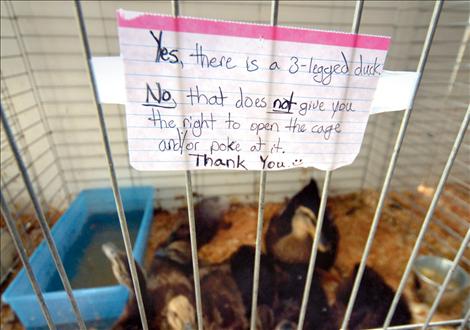 Yes, there is a 3-legged duck.
No, that does not give you
the right to open the cage
and/or poke at it.
Thank You :)